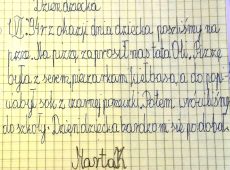 Dzień dziecka
1 VI. 94r z okazji dnia dziecka poszliśmy na
pizzę. Na pizzę zaprosił nas tata Oli. Pizza
była z serem pieczarkami kiełbasą, a do popi-
wabył sok z czarnej porzeczki. Potem wróciliśmy
do szkoły. Dzień dziecka bardzo mi się podobał.
Marta K